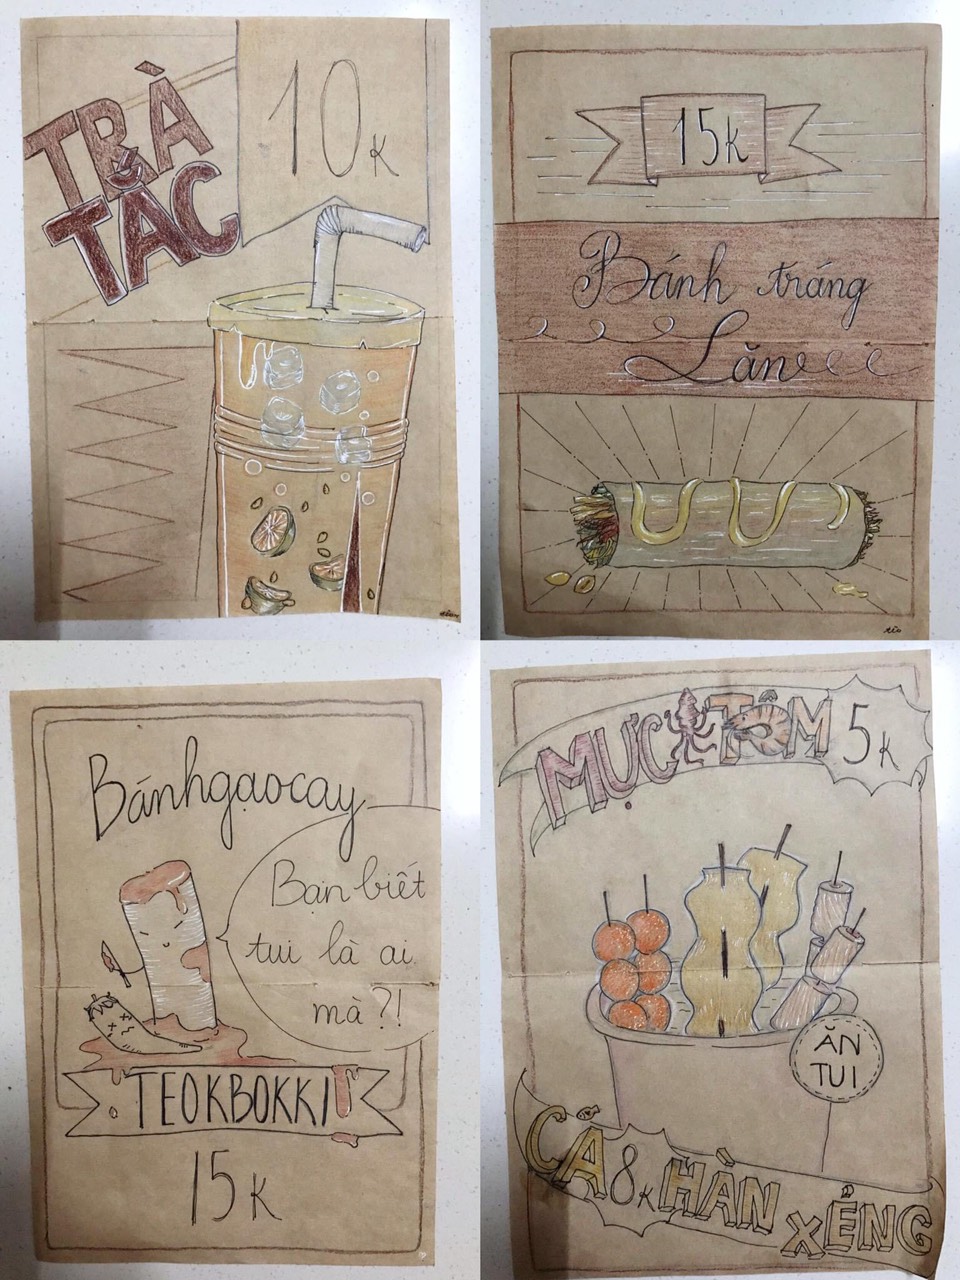 TRÀ
TẮC
10K
15K
Bánh tráng
Lăn
Bánh gạo cay
Bạn biết
tui là ai
mà ?!
TEOKBOKKI
15K
MỰC TÔM
5K
ĂN
TUI
CÁ 8K HÀN XẺNG